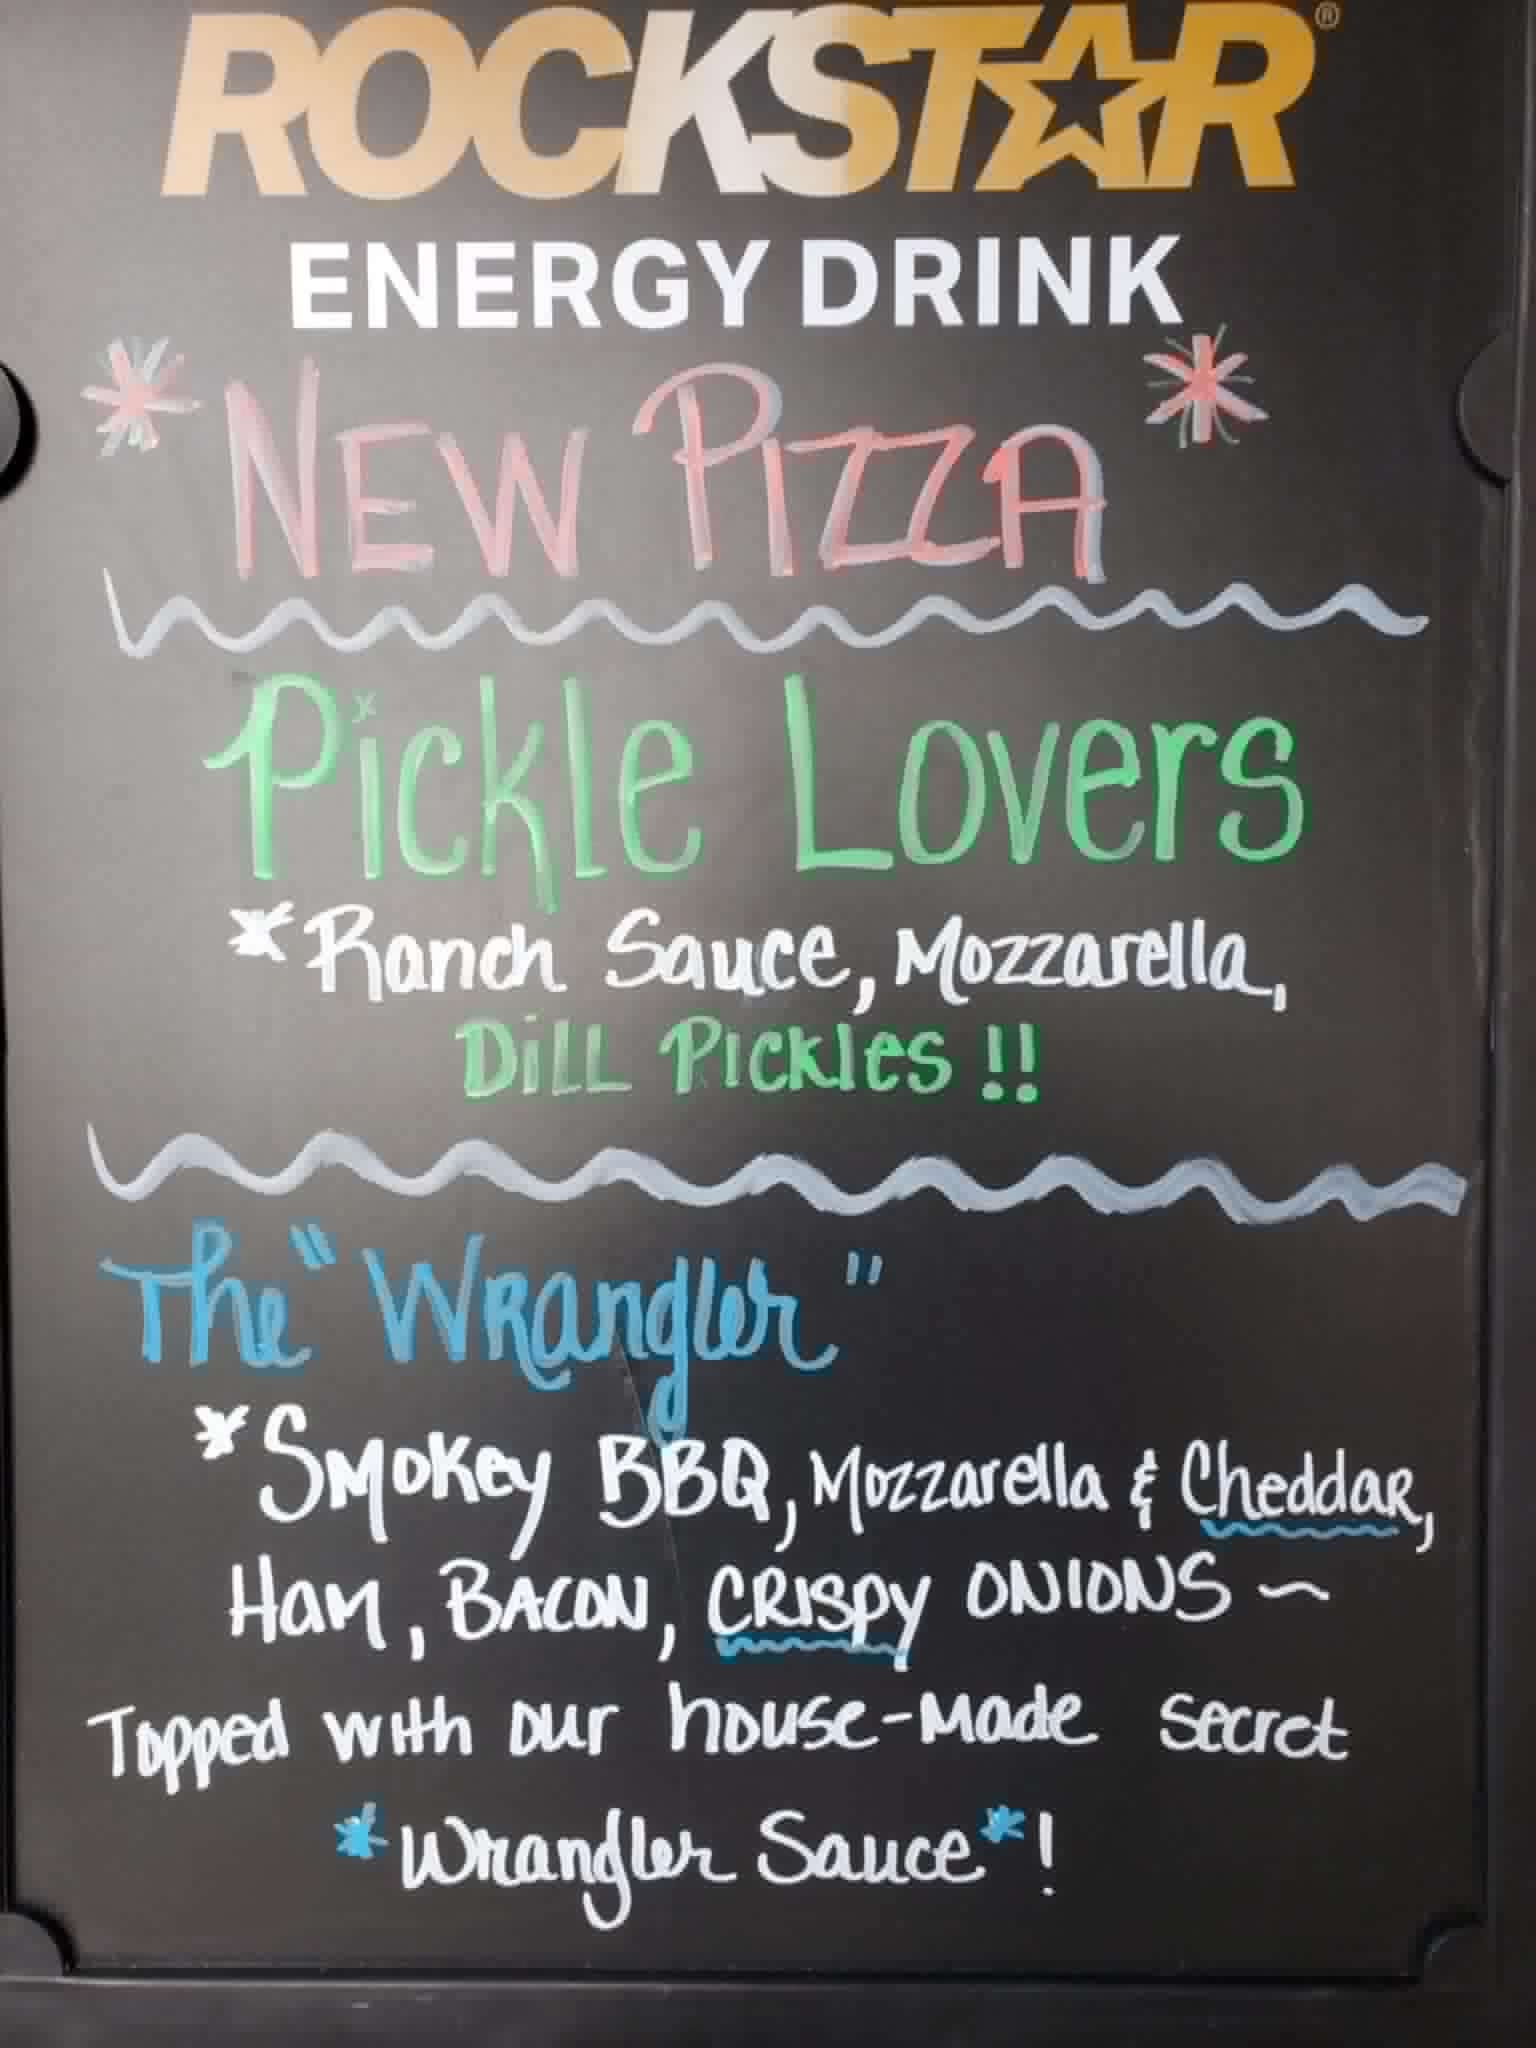 ROCKSTAR®
ENERGY DRINK
*NEW PIZZA*
Pickle Lovers
*Ranch Sauce, Mozzarella,
Dill Pickles !!
The "Wrangler"
*Smokey BBQ, Mozzarella & Cheddar,
Ham, Bacon, CRISPY ONIONS ~
Topped with our house-made secret
*Wrangler Sauce*!